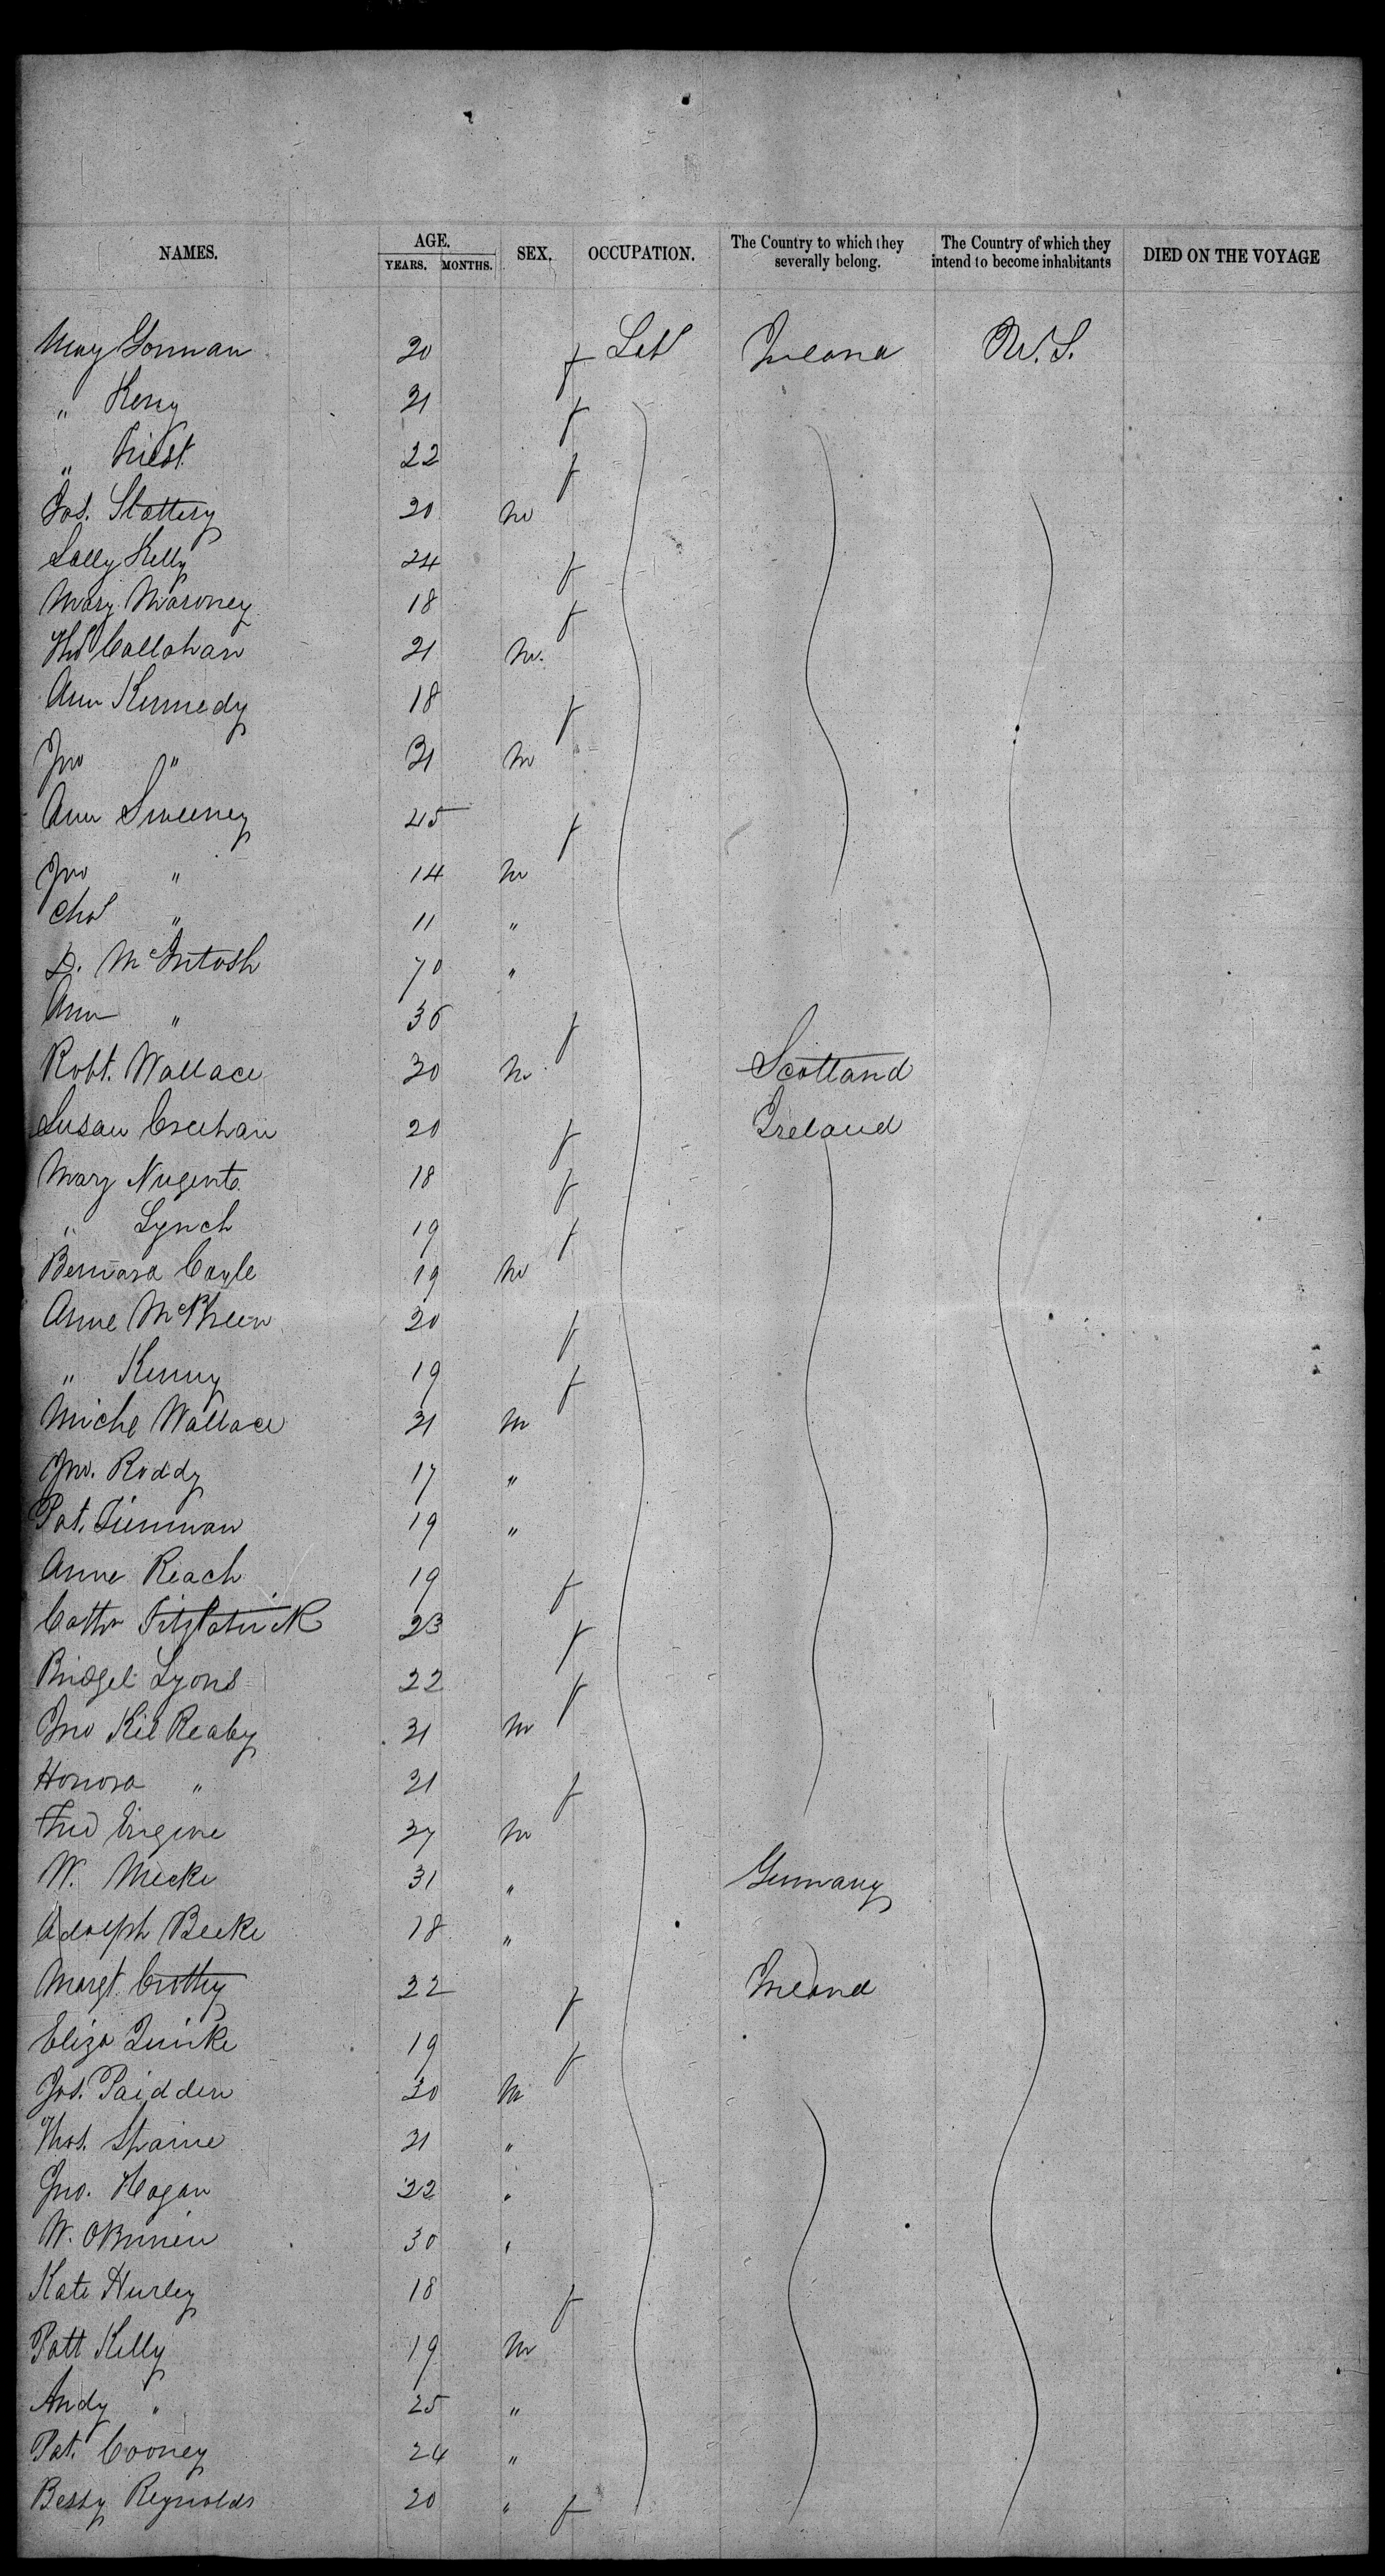 NAMES. AGE. YEARS. MONTHS. SEX. OCCUPATION. The Country to which they severally belong. The Country of which they intend to become inhabitants DIED ON THE VOYAGE
Mary Gorman 20 f Lab Ireland U.S.
" Kerry 21 f
" Priest 22 f
Jas. Slattery 20 m
Sally Kelly 24 f
Mary Maroney 18 f
Thos Callahan 21 m.
Ann Kennedy 18 f
Jno " 31 m
Ann Sweeney 45 f
Jno " 14 m
Chas " 11 "
D. McIntosh 70 "
Ann " 36 f
Robt. Wallace 30 m Scotland
Susan Creehan 20 f Ireland
Mary Nugent 18 f
" Lynch 19 f
Bernard Coyle 19 m
Anne 20 f
" Kenny 19 f
Michl Wallace 21 m
Jno. Roddy 17 "
Pat. 19 "
Anne Reach 19 f
Cathn FitzPatrick 23 f
Bridget Lyons 22 f
Jno Kil Reaby 31 m
Honora " 21 f
Fred 37 m
W. Mecke 31 " Germany
Adolph Beeke 18 "
Margt. Crotty 22 f Ireland
Eliza Quirke 19 f
Jas. Paidden 30 m
Thos. Spaine 21 "
Jno. Hogan 22 "
W. OBrien 30 "
Kate Hurley 18 f
Patt Kelly 19 m
Andy " 25 "
Pat. Cooney 24 "
Bessy Reynolds 20 " f